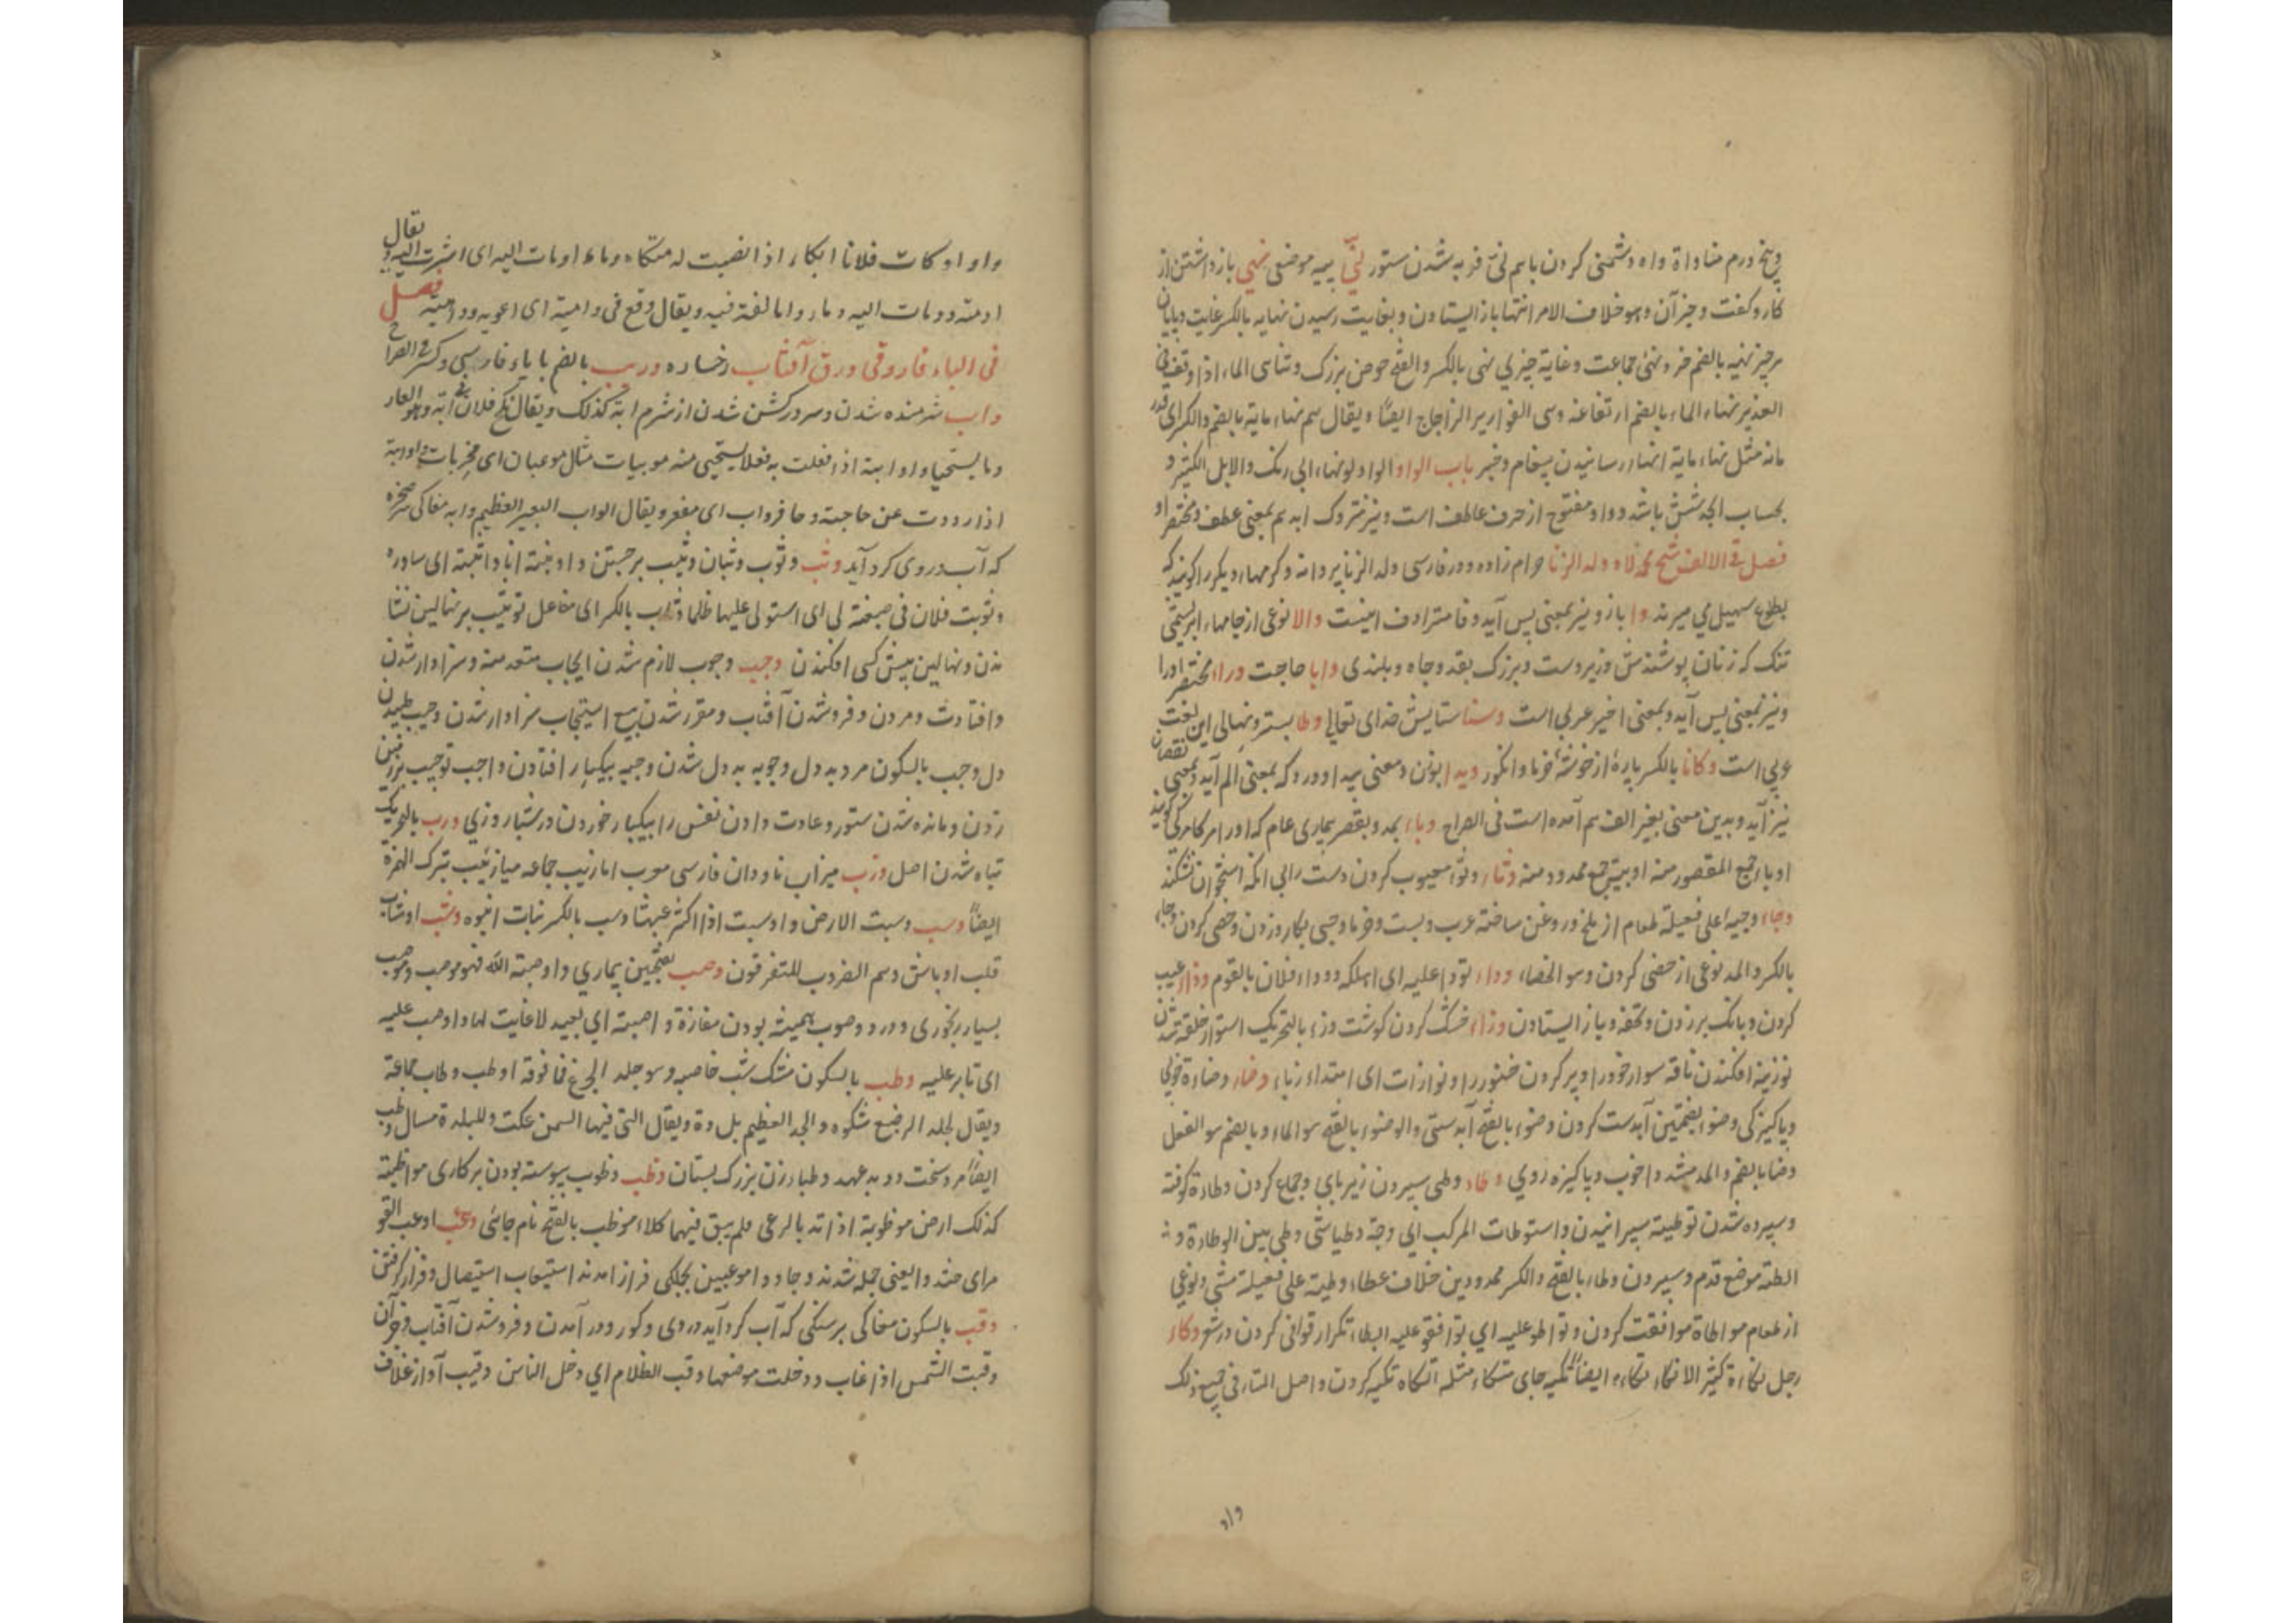 وپنج درم مناواة واه دشمنی کردن باهم نئ فربه شدن ستور نهیا پیه موضعی نهی بازداشتن از
کار و گفت و جز آن و هو خلاف الامر انتها باز ایستادن و بغایت رسیدن نهایه بالکسر غایت و پایان
هر چیز نهیه بالضم خرد و نهئ جماعت و غایة چیزی نهی بالکسر و الفتح حوض بزرک و تناهی الماء اذا وقف فی
الغدیر نهاء الماء بالضم ارتفاعه وهی القواریر الزجاج ایضًا ویقال هم نهاء مایة بالضم والکسر ای قدر
مائه مثل نهاء مایة انهاء رسانیدن پیغام و خبر باب الواو الواو لونهاء ابی رنک والابل الکثیر و
بحساب ابجد شش باشد و واو مفتوح از حرف عاطف است و نیز متروک ابد هم بمعنی عطف و مختصر او
فصل فی الالف شیخ محمد لاد ولد الزنا حرام زاده و در فارسی ولد الزنا پروانه و کرمها دیکر را کویند که
بطلوع سهیل می میرند وا باز و نیز بمعنی پس آید و فا مترادف اینست والا نوعی از جامهاء ابریشمی
تنک که زنان پوشندش و زبردست و بزرک بقد و جاه و بلندی وایا حاجت ورا مختصر او را
و نیز بمعنی پس آید و بمعنی اخیر عربی است وستا ستایش خدای تعالی وطا بستر و نهالی این لغت
عربی است وکانا بالکسر پارهٔ از خوشهٔ خرما و انکور ویدا بوزن و معنی پیدا و درد که بمعنی الم آید و بمعنی نقصان
نیز آید و بدین معنی بغیر الف هم آمده است فی الصراح وباء بمد و بقصر بیماری عام که او را مرکامرکی کویند
اوباء جمع المقصور منه اوبیة جمع ممدود منه وثاء وثوا معیوب کردن دست را بی انکه استخوان شکند
وجاء وجیه اعلی فعیلة طعام از ملخ و روغن ساخته عرب و بست و خرما وجی بکارد زدن و خصی کردن وجاء
بالکسر والمد نوعی از خصی کردن و هو الخصاء وداء تودا علیه ای اهلکه ووداء فلان بالقوم وذاء عیب
کردن و بانک بر زدن و تحقه و باز ایستادن وزاء خشک کردن کوشت وزء بالتحریک استوار خلقة شدن
توزیة افکندن ناقه سوار خود را و پر کردن خنور را و توازات ای امتداء زناء وضاء وضاءة خوبی
و پاکیزکی وضوء بضمتین آبدست کردن وضوء بالفتح آبدستی والوضوء بالفتح هو الماء و بالضم هو الفعل
وضا بالضم والمد مشددا خوب و پاکیزه روی وطاء وطی سپردن زیر پای و جماع کردن وطاءة کوفته
و سپرده شدن توطیة سپرانیدن و استوطات المرکب ای وجدته وطیا شی وطی بین الوطاءة و
الطئة موضع قدم و سپردن وطاء بالفتح والکسر ممدودین خلاف غطاء وطیة علی فعیلة مشی و نوعی
از طعام مواطاة موافقت کردن و تواطو علیه ای توافقو علیه ایطاء تکرار قوافی کردن در شعر وکاء
رجل تکاءة کثیر الاتکاء تکاءه ایضًا تکیه جای متکاء مثله اتکاه تکیه کردن و اصل التاء فی جمیع ذلک
واو
واو اوکات فلانا ایکاء اذا نصبت له متکاء وماء اومات الیه ای اشرت الیه و یقال
اومته وومات الیه وماء واما لغة فیه ویقال وقع فی وامیة ای اعویه وداهیة فصل
فی الباء فاروقی ورق آفتاب رخساره وریب بالضم بایاء فارسی و کسر فی الصراح
واب شرمنده شدن و سر در کشن شدن از شرم ابة کذلک ویقال نکح فلان فی ابة و هو العار
وما یستحیا واوابیة اذا فعلت به فعلا یستحیی منه موبیات مثال موعبات ای مخزیات واوابیة
اذا رددت عن حاجته و حافر واب ای مقعر ویقال الواب البعیر العظیم وابه مغاکی صخره
که آب در وی کرد آید وثب وثوب وثبان وثیب برجستن و اوثبته انا واثبته ای ساوره
وتوثبت فلان فی ضیعة لی ای استولی علیها ظلما وثاب بالکسر ای مقاعد توثیب بر نهالین نشا
ندن و نهالین پیش کسی افکندن وجب وجوب لازم شدن ایجاب متعد منه و سزاوار شدن
و افتادن و مردن و فرو شدن آفتاب و مقرر شدن بیع استیجاب سزاوار شدن وجیب طپیدن
دل وجب بالسکون مرد بددل وجوبه بددل شدن وجبه بیکبار افتادن واجب توجیب بر زمین
زدن و مانده شدن ستور و عادت دادن نفس را بیکبار خوردن در شبان روزی ورب بالتحریک
تباه شدن اصل وزب میزاب ناودان فارسی معرب امازیب جماعه میازیب بترک الهمزة
ایضًا وسب وسبت الارض واوسبت اذا اکثر عبهشا وسب بالکسر نبات انبوه وشب اوشاب
قلب اوباش وهم الضروب المتفرقون وصب بفتحین بیماری واوصبه الله فهو موصب وموصب
بسیار رنجوری و درد و وصوب همیشه بودن مفازة واصبة ای بعید لا غایت لها واوصب علیه
ای ثابر علیه وطب بالسکون مشک شب خاصه وهو جلد الجذع فما فوقه اوطب وطاب جماعة
ویقال لجلد الرضیع شکوه والجد العظیم بل وة ویقال التی فیها السمن عکت وللبلدة مساب وطب
ایضًا مرد سخت و بد عهد وطباء زن بزرک پستان وظب وظوب پیوسته بودن بر کاری مواظبة
کذلک ارض موظوبة اذا تد بالرعی فلم یبق فیها کلاء موظب بالفتح نام جائی وعب اوعب القو
م ای حشدوا یعنی جمله شدند وجاؤوا موعبین بجملکی فراز امدند استیعاب استیصال و فرا کرفتن
وقب بالسکون مغاکی بر سنکی که آب کرد آید در وی و کور و در آمدن و فرو شدن آفتاب و جز آن
وقبت الشمس اذا غاب و دخلت موضعها وقب الظلام ای دخل الناس وقیب آواز غلاف